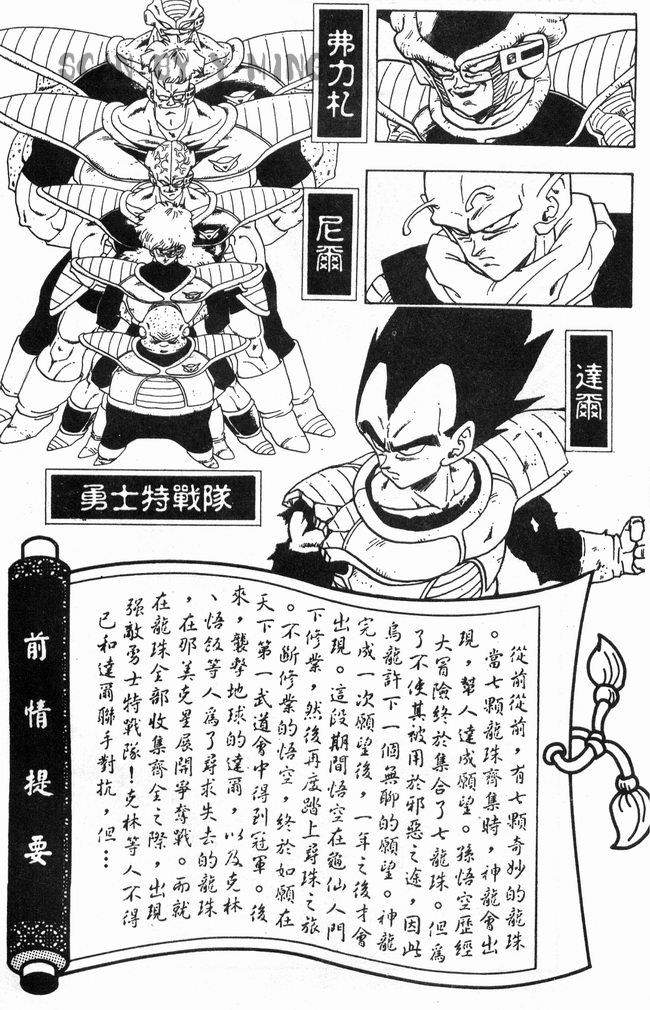 SCAN BY Y MING
弗力札
尼爾
達爾
勇士特戰隊
前情提要
從前從前，有七顆奇妙的龍珠
。當七顆龍珠齊集時，神龍會出
現，幫人達成願望。孫悟空歷經
大冒險終於集合了七龍珠。但為
了不使其被用於邪惡之途，因此
烏龍許下一個無聊的願望。神龍
完成一次願望後，一年之後才會
出現。這段期間悟空在龜仙人門
下修業，然後再度踏上尋珠之旅
。不斷修業的悟空，終於如願在
天下第一武道會中得到冠軍。後
來，襲擊地球的達爾，以及克林
、悟飯等人為了尋求失去的龍珠
，在那美克星展開爭奪戰。而就
在龍珠全部收集齊全之際，出現
強敵勇士特戰隊！克林等人不得
已和達爾聯手對抗，但…